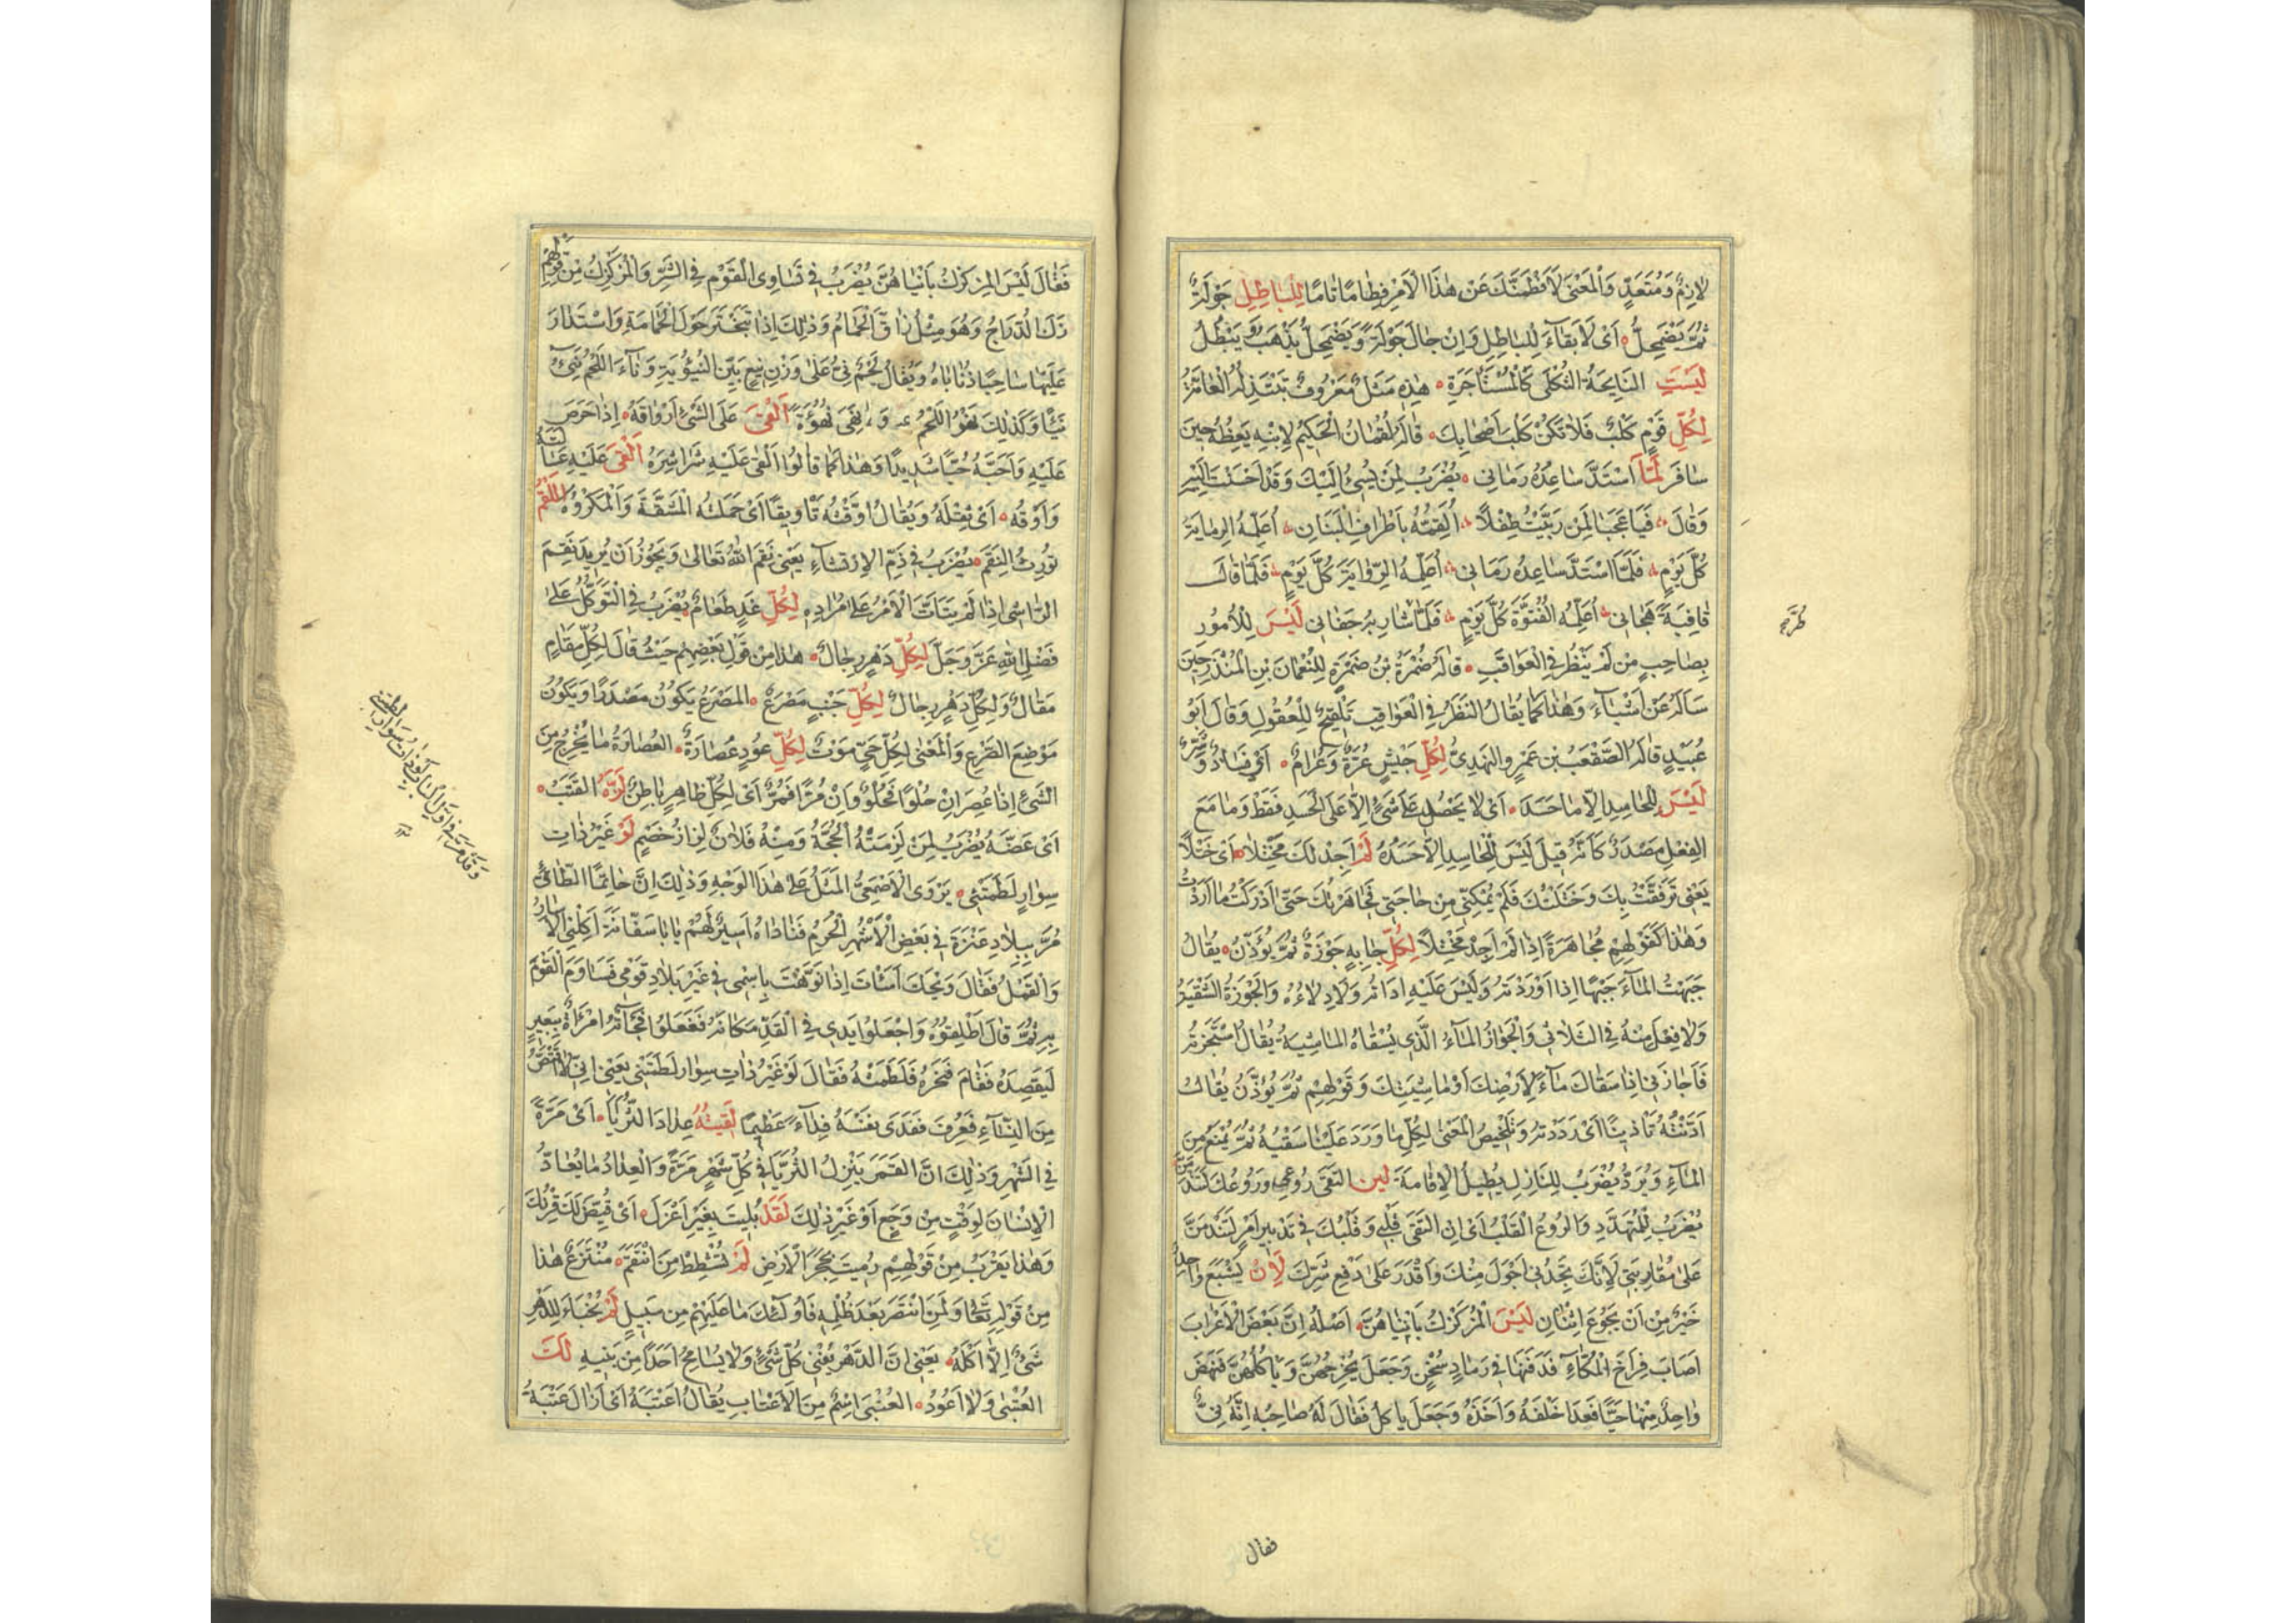 لازِمٌ وَمُتَعَدٍّ وَالْمَعْنى لَاَفْطِمَنَّكَ عَنْ هٰذَا الْاَمْرِ فِطامًا تامًا لِلْباطِلِ جَوْلَةٌ
ثُمَّ يَضْمَحِلُّ اَىْ لَا بَقآءَ لِلْباطِلِ وَاِنْ جالَ جَوْلَةً وَيَضْمَحِلُّ يَذْهَبُ وَيَبْطُلُ
لَيْسَتِ النّايِحَةُ الثَّكْلى كَالْمُسْتَأْجَرَةِ هٰذِهِ مَثَلٌ مَعْرُوفٌ تَبْتَذِلُهُ الْعامَّةُ
لِكُلِّ قَوْمٍ كَلْبٌ فَلاتَكُنْ كَلْبَ اَصْحابِكَ قالَهُ لُقْمانُ الْحَكِيْمُ لِابْنِهِ يَعِظُهُ حِيْنَ
سافَرَ لَمَّا اسْتَدَّ ساعِدُهُ رَمانِى يُضْرَبُ لِمَنْ يُسِئُ اِلَيْكَ وَقَدْ اَحْسَنْتَ اِلَيْهِ
وَقالَ فَيا عَجَبًا لِمَنْ رَبَّيْتُ طِفْلاً اُلَقِّمُهُ بِاَطْرافِ الْبَنانِ اُعَلِّمُهُ الرِّمايَةَ
كُلَّ يَوْمٍ فَلَمَّا اسْتَدَّ ساعِدُهُ رَمانِى اُعَلِّمُهُ الرِّوايَةَ كُلَّ يَوْمٍ فَلَمّا قالَ
قافِيَةً هَجانِى اُعَلِّمُهُ الْفُتُوَّةَ كُلَّ يَوْمٍ فَلَمّا طَرَّ شارِبُهُ جَفانِى لَيْسَ لِلْاُمُوْرِ
بِصاحِبٍ مَنْ لَمْ يَنْظُرْ فِى الْعَواقِبِ قالَهُ ضَمْرَةُ بْنُ ضَمْرَةٍ لِلنُّعْمانَ بْنِ الْمُنْذِرِ حِيْنَ
سَاَلَهُ عَنْ اَشْيآءَ وَهٰذا كَما يُقالُ النَّظَرُ فِى الْعَواقِبِ تَلْقِيْحٌ لِلْعُقُولِ وَقالَ اَبُو
عُبَيْدٍ قالَهُ الصَّقْعَبُ بْنُ عَمْرٍو النَّهْدِىُّ لِكُلِّ جَيْشٍ عُرَّةٌ وَعُرامٌ اَىْ فَسادٌ وَشَرٌّ
لَيْسَ لِلْحاسِدِ اِلّا ما حَسَدَ اَىْ لا يَحْصُلُ عَلى شَىْءٍ اِلّا عَلَى الْحَسَدِ فَقَطْ وَما مَعَ
الْفِعْلِ مَصْدَرٌ كَاَنَّهُ قِيْلَ لَيْسَ لِلْحاسِدِ اِلّا حَسَدُهُ لَمْ اَجِدْ لَكَ مَخْتَلاً اَىْ خَتْلاً
يَعْنِى تَرَفَّقْتُ بِكَ وَخَتَلْتُكَ فَلَمْ يُمْكِنِّى مِنْ حاجَتِى فَجاهَرْتُكَ حَتّى اَدْرَكْتُ ما اَرَدْتُ
وَهٰذا كَقَوْلِهِمْ مُجاهَرَةً اِذا لَمْ اَجِدْ مَخْتَلاً لِكُلِّ جابِهٍ جَوْزَةٌ ثُمَّ يُؤَذَّنُ يُقالُ
جَبَهْتُ الْمآءَ جَبْهًا اِذا اَوْرَدْتَهُ وَلَيْسَ عَلَيْهِ اَداتُهُ وَلا دِلاءُهُ وَالْجَوْزَةُ السَّقْيَةُ
وَلا فِعْلَ مِنْهُ فِى الثُّلاثِى وَالْجَوازُ الْمآءُ الَّذِى يُسْقاهُ الْماشِيَةُ يُقالُ اسْتَجَزْتُهُ
فَاَجازَنِى اِذا سَقاكَ مآءً لِاَرْضِكَ اَوْ ماشِيَتِكَ وَقَوْلِهِمْ ثُمَّ يُؤَذَّنُ يُقالُ
اَذَّنْتُهُ تَأْذِيْنًا اَىْ رَدَدْتُهُ وَتَلْخِيْصُ الْمَعْنى لِكُلِّ ما وَرَدَ عَلَيْنا سَقْيُهُ ثُمَّ يُمْنَعُ مِنَ
الْمآءِ وَيُرَدُّ يُضْرَبُ لِلنّازِلِ يُطِيْلُ الْاِقامَةَ لَئِنِ الْتَقَى رُوْعِى وَرُوْعُكَ لَتَنْدَمَنَّ
يُضْرَبُ لِلْمُتَهَدِّدِ وَالرُّوْعُ الْقَلْبُ اَىْ اِنِ الْتَقَى قَلْبِى وَقَلْبُكَ فِى تَدْبِيْرِ اَمْرٍ لَتَنْدَمَنَّ
عَلى مُقارَبَتِى لِاَنَّكَ تَجِدُنِى اَحْوَلَ مِنْكَ وَاَقْدَرَ عَلى دَفْعِ شَرِّكَ لَاَنْ يَشْبَعَ واحِدٌ
خَيْرٌ مِنْ اَنْ يَجُوْعَ اثْنانِ لَيْسَ الْمُزَكْزِكُ بِاَنْيَاهُنَّ اَصْلُهُ اِنَّ بَعْضَ الْاَعْرابِ
اَصابَ فِراخَ الْمُكّآءِ فَدَفَنَها فِى رَمادٍ سُخْنٍ وَجَعَلَ يُخْرِجُهُنَّ وَيَأْكُلُهُنَّ فَنَهَضَ
واحِدٌ مِنْها حَيًّا فَعَدا خَلْفَهُ وَاَخَذَهُ وَجَعَلَ يَأْكُلُ فَقالَ لَهُ صاحِبُهُ اِنَّهُ نِىٌّ
فقال
فَقالَ لَيْسَ الْمُزَكْزِكُ بِاَنْيَاهُنَّ يُضْرَبُ فِى تَساوِى الْقَوْمِ فِى الشَّرِّ وَالْمُزَكْزِكُ مِنْ قَوْلِهِمْ
زَكَّ الدُّرّاجُ وَهُوَ مِثْلُ زافَ الْحَمامُ وَذٰلِكَ اِذا تَبَخْتَرَ حَوْلَ الْحَمامَةِ وَاسْتَدارَ
عَلَيْها ساحِبًا ذُناباهُ وَيُقالُ لَحْمٌ نِىءٌ عَلى وَزْنِ نِيْعٍ بَيِّنُ النُّيُوْئَةِ وَنآءَ اللَّحْمُ يَنِىْءُ
نَيْئًا وَكَذٰلِكَ نَهُؤَ اللَّحْمُ وَنَهِئَ نُهُؤَةً اَلْقى عَلَى الشَّىْءِ اَرْواقَهُ اِذا حَرَصَ
عَلَيْهِ وَاَحَبَّهُ حُبًّا شَدِيْدًا وَهٰذا كَما قالُوا اَلْقى عَلَيْهِ شَراشِرَهُ اَلْقى عَلَيْهِ عَبالَّتَهُ
وَاَوْقَهُ اَىْ ثِقْلَهُ وَيُقالُ اَوَّقْتُهُ تَأْوِيْقًا اَىْ حَمَّلْتُهُ الْمَشَقَّةَ وَالْمَكْرُوْهَ اللُّقَمُ
تُوْرِثُ النِّقَمَ يُضْرَبُ فِى ذَمِّ الْاِرْتِشآءِ يَعْنِى نِقَمَ اللهِ تَعالى وَيَجُوْزُ اَنْ يُرِيْدَ نِقَمَ
الرّاشِى اِذا لَمْ يَتَأَتَّ الْاَمْرُ عَلى مُرادِهِ لِكُلِّ غَدٍ طَعامٌ يُضْرَبُ فِى التَّوَكُّلِ عَلى
فَضْلِ اللهِ عَزَّ وَجَلَّ لِكُلِّ دَهْرٍ رِجالٌ هٰذا مِنْ قَوْلِ بَعْضِهِمْ حَيْثُ قالَ لِكُلِّ مَقامٍ
مَقالٌ وَلِكُلِّ دَهْرٍ رِجالٌ لِكُلِّ جَنْبٍ مَصْرَعٌ الْمَصْرَعُ يَكُوْنُ مَصْدَرًا وَيَكُوْنُ
مَوْضِعَ الصَّرْعِ وَالْمَعْنى لِكُلِّ حَىٍّ مَوْتٌ لِكُلِّ عُوْدٍ عُصارَةٌ الْعُصارَةُ ما يَخْرُجُ مِنَ
الشَّىْءِ اِذا عُصِرَ اِنْ حُلْوًا فَحُلْوٌ وَاِنْ مُرًّا فَمُرٌّ اَىْ لِكُلِّ ظاهِرٍ باطِنٌ لَزَّهُ الْقَتَبُ
اَىْ عَضَّهُ يُضْرَبُ لِمَنْ لَزِمَتْهُ الْحُجَّةُ وَمِنْهُ فُلانٌ لِزازُ خَصْمٍ لَوْ غَيْرُ ذاتِ
سِوارٍ لَطَمَتْنِى يَرْوِى الْاَصْمَعِىُّ الْمَثَلَ عَلى هٰذَا الْوَجْهِ وَذٰلِكَ اِنَّ حاتِمًا الطّائِىَّ
مَرَّ بِبِلادِ عَنَزَةَ فِى بَعْضِ الْاَشْهُرِ الْحُرُمِ فَناداهُ اَسِيْرٌ لَهُمْ يا اَبا سَفّانَةَ اَكَلَنِى الْاِسارُ
وَالْقَمْلُ فَقالَ وَيْحَكَ اَسَأْتَ اِذا نَوَّهْتَ بِاسْمِى فِى غَيْرِ بِلادِ قَوْمِى فَساوَمَ الْقَوْمَ
بِهِ ثُمَّ قالَ اَطْلِقُوْهُ وَاجْعَلُوا يَدِى فِى الْقِدِّ مَكانَهُ فَفَعَلُوا فَجآءَتْهُ امْرَأَةٌ بِبَعِيْرٍ
لِيَفْصِدَهُ فَقامَ فَنَحَرَهُ فَلَطَمَتْهُ فَقالَ لَوْ غَيْرُ ذاتِ سِوارٍ لَطَمَتْنِى يَعْنِى اِنِّى لا اَقْتَصُّ
مِنَ النِّسآءِ فَعُرِفَ فَفَدى نَفْسَهُ فِدآءً عَظِيْمًا لَقِيْتُهُ عِدادَ الثُّرَيّا اَىْ مَرَّةً
فِى الشَّهْرِ وَذٰلِكَ اَنَّ الْقَمَرَ يَنْزِلُ الثُّرَيّا فِى كُلِّ شَهْرٍ مَرَّةً وَالْعِدادُ ما يُعادُّ
الْاِنْسانَ لِوَقْتٍ مِنْ وَجَعٍ اَوْ غَيْرِ ذٰلِكَ لَقَدْ بُلِيْتَ بِغَيْرِ اَعْزَلَ اَىْ قُيِّضَ لَكَ قِرْنُكَ
وَهٰذا يَقْرُبُ مِنْ قَوْلِهِمْ رُمِيْتَ بِحَجَرِ الْاَرْضِ لَمْ يَشْطِطْ مَنِ انْتَقَمَ مُنْتَزَعٌ هٰذا
مِنْ قَوْلِهِ تَعالى وَلَمَنِ انْتَصَرَ بَعْدَ ظُلْمِهِ فَاُولٰئِكَ ما عَلَيْهِمْ مِنْ سَبِيْلٍ لَمْ يُخْبَأْ لِلدَّهْرِ
شَىْءٌ اِلّا اَكَلَهُ يَعْنِى اَنَّ الدَّهْرَ يُفْنِى كُلَّ شَىْءٍ وَلا يُسامِحُ اَحَدًا مِنْ بَنِيْهِ لَكَ
الْعُتْبى وَلا اَعُوْدُ الْعُتْبى اسْمٌ مِنَ الْاِعْتابِ يُقالُ اَعْتَبَهُ اَىْ اَزالَ عَتْبَهُ